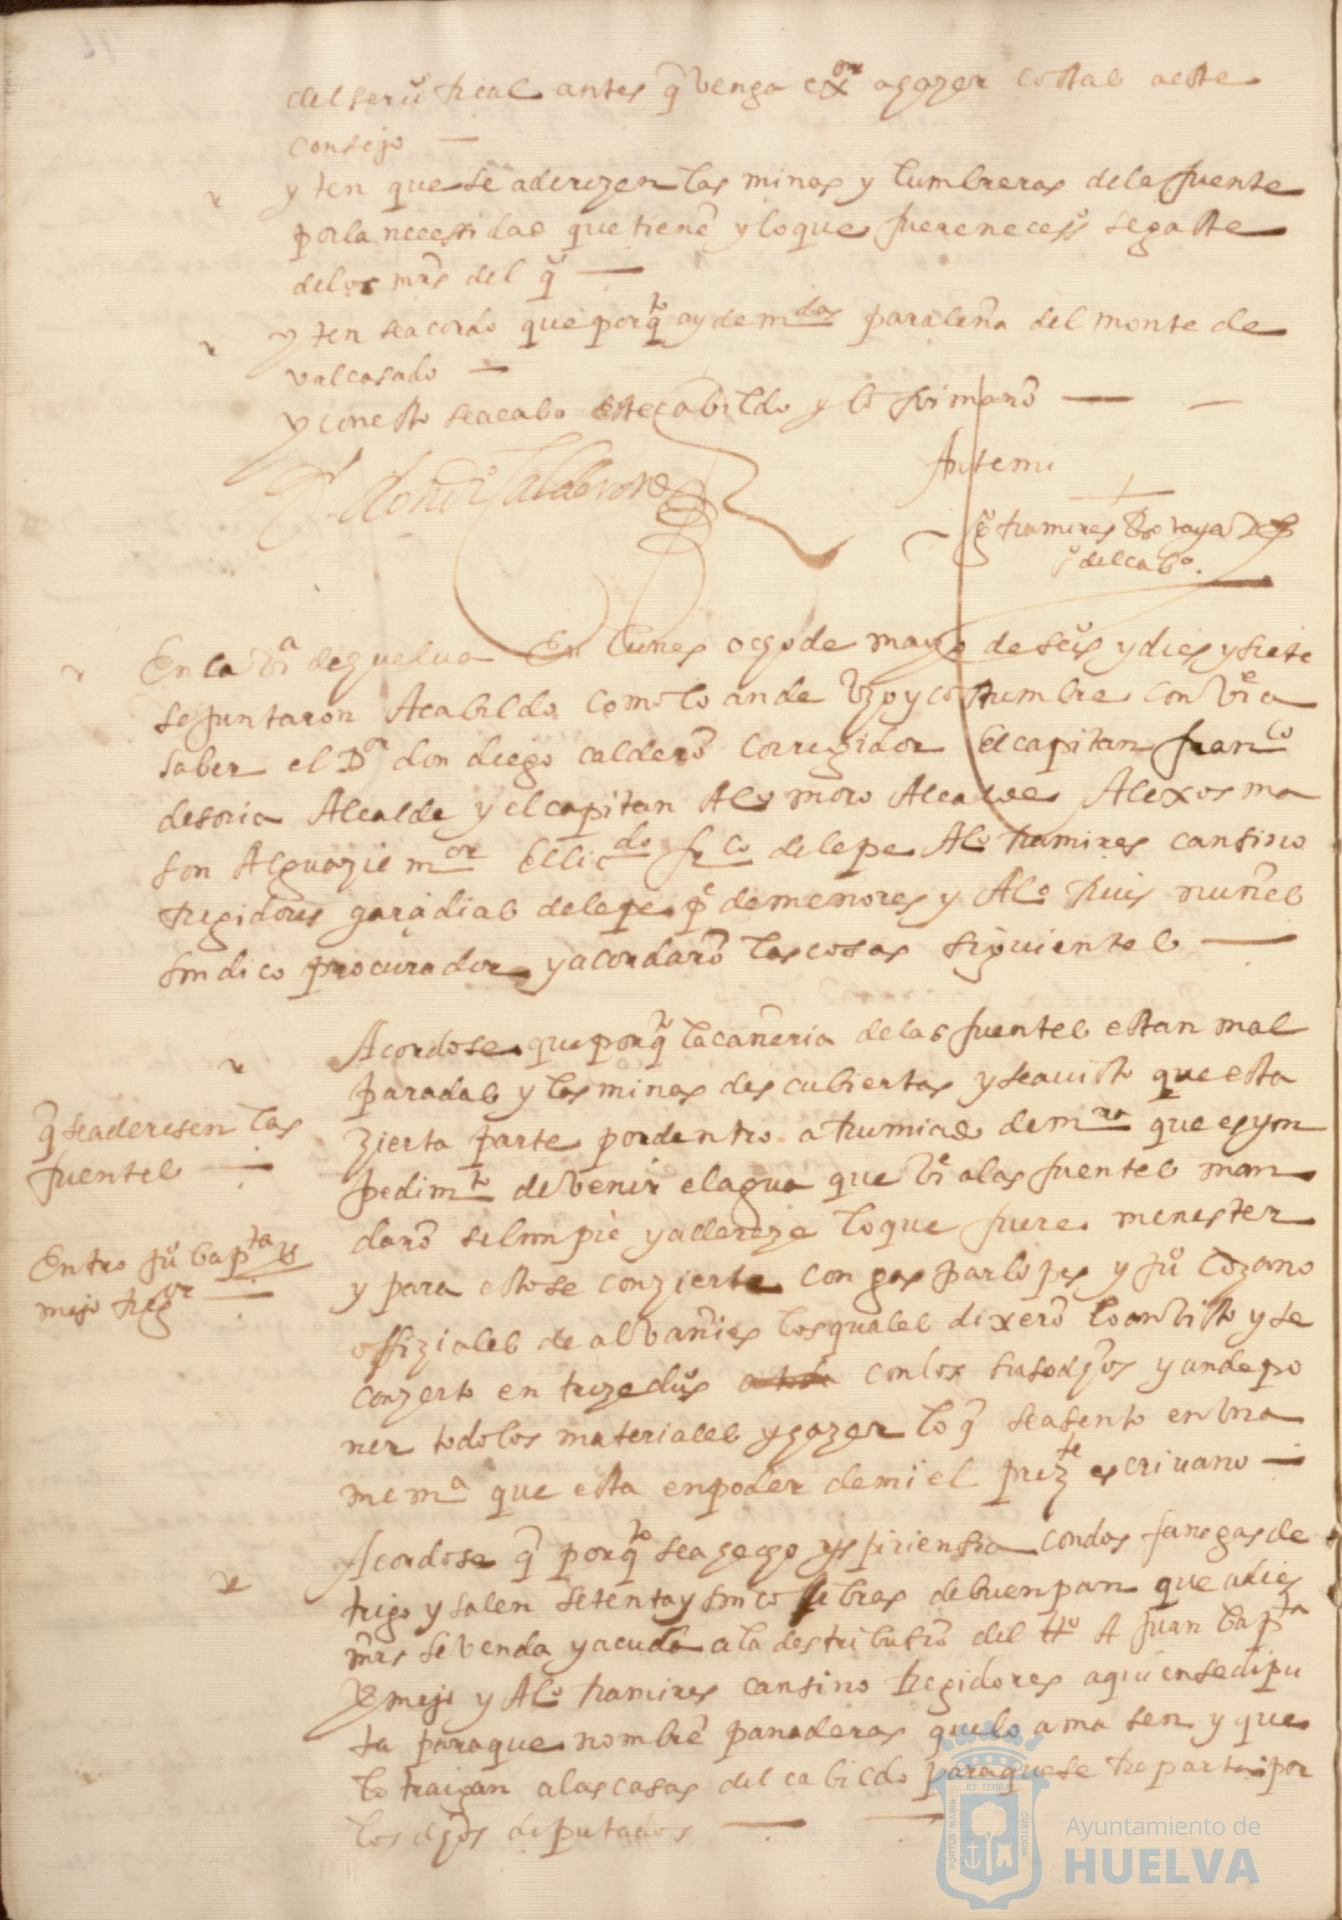 del seruº Real antes q̃ benga exor a hazer costas a este
consejo
yten que se aderezen las minas y lumbreras de la fuente
por la necessidad que tienẽ y lo que fuere necesº se gaste
de los mrs del qº
yten se acordo que porqto ay demdas para leña del monte de
valcasado
y con esto se acabo este cabildo y lo firmarõ
Antemi
Dr don diº Calderon
Ramires
sº del cabº.
En la vª de guelua En lunes ocho de mayo de seisº y dies y siete
se juntaron A cabildo como lo an de vzo y costumbre conbiẽ a
saber el Dor don diego calderõ corregidor El capitan franco
de soria Alcalde y el capitan Alº moro Alcalde Alexos ma
son Alguazil mor El licdo frco de lepe Alº Ramires cansino
Regidores garcia dias de lepe pe de menores y Alº Ruis nuñes
sindico procurador y acordarõ las cosas siguientes
Acordose que porq̃ la cañeria de las fuentes estan mal
paradas y las minas descubiertas y se a uisto que esta
zierta parte por dentro arrumiada de mra que es yn
pedimto de venir el agua que bĩ a las fuentes man
darõ se limpie y adereze lo que fuere menester
y para esto se conzierte con gaspar lopes y juº lozano
offiziales de albañies los quales dixerõ lo an bisto y se
conzerto en treze dusº con los susodhos y an de po
ner todo los materiales y hazer lo q̃ se asento en vna
memª que esta en poder de mi el prezte escriuano
q̃ se aderesen las
fuentes
Entro juº bapta ber
mejo Regor
Acordose q̃ porqto se a hecho yspiriensia con dos fanegas de
trigo y salen setenta y sinco libras de buen pan que a diez
mrs se venda y acuda a la destribusiõ del tto A juan bapta
bermejo y Alº Ramires cansino Regidores a quien se dipu
ta para que nombrẽ panaderas que lo amasen y que
lo traigan a las casas del cabildo para que se reparta por
los dhos diputados
PORTUS MARIS
ET TERRAE
CUSTODIA
Ayuntamiento de
HUELVA